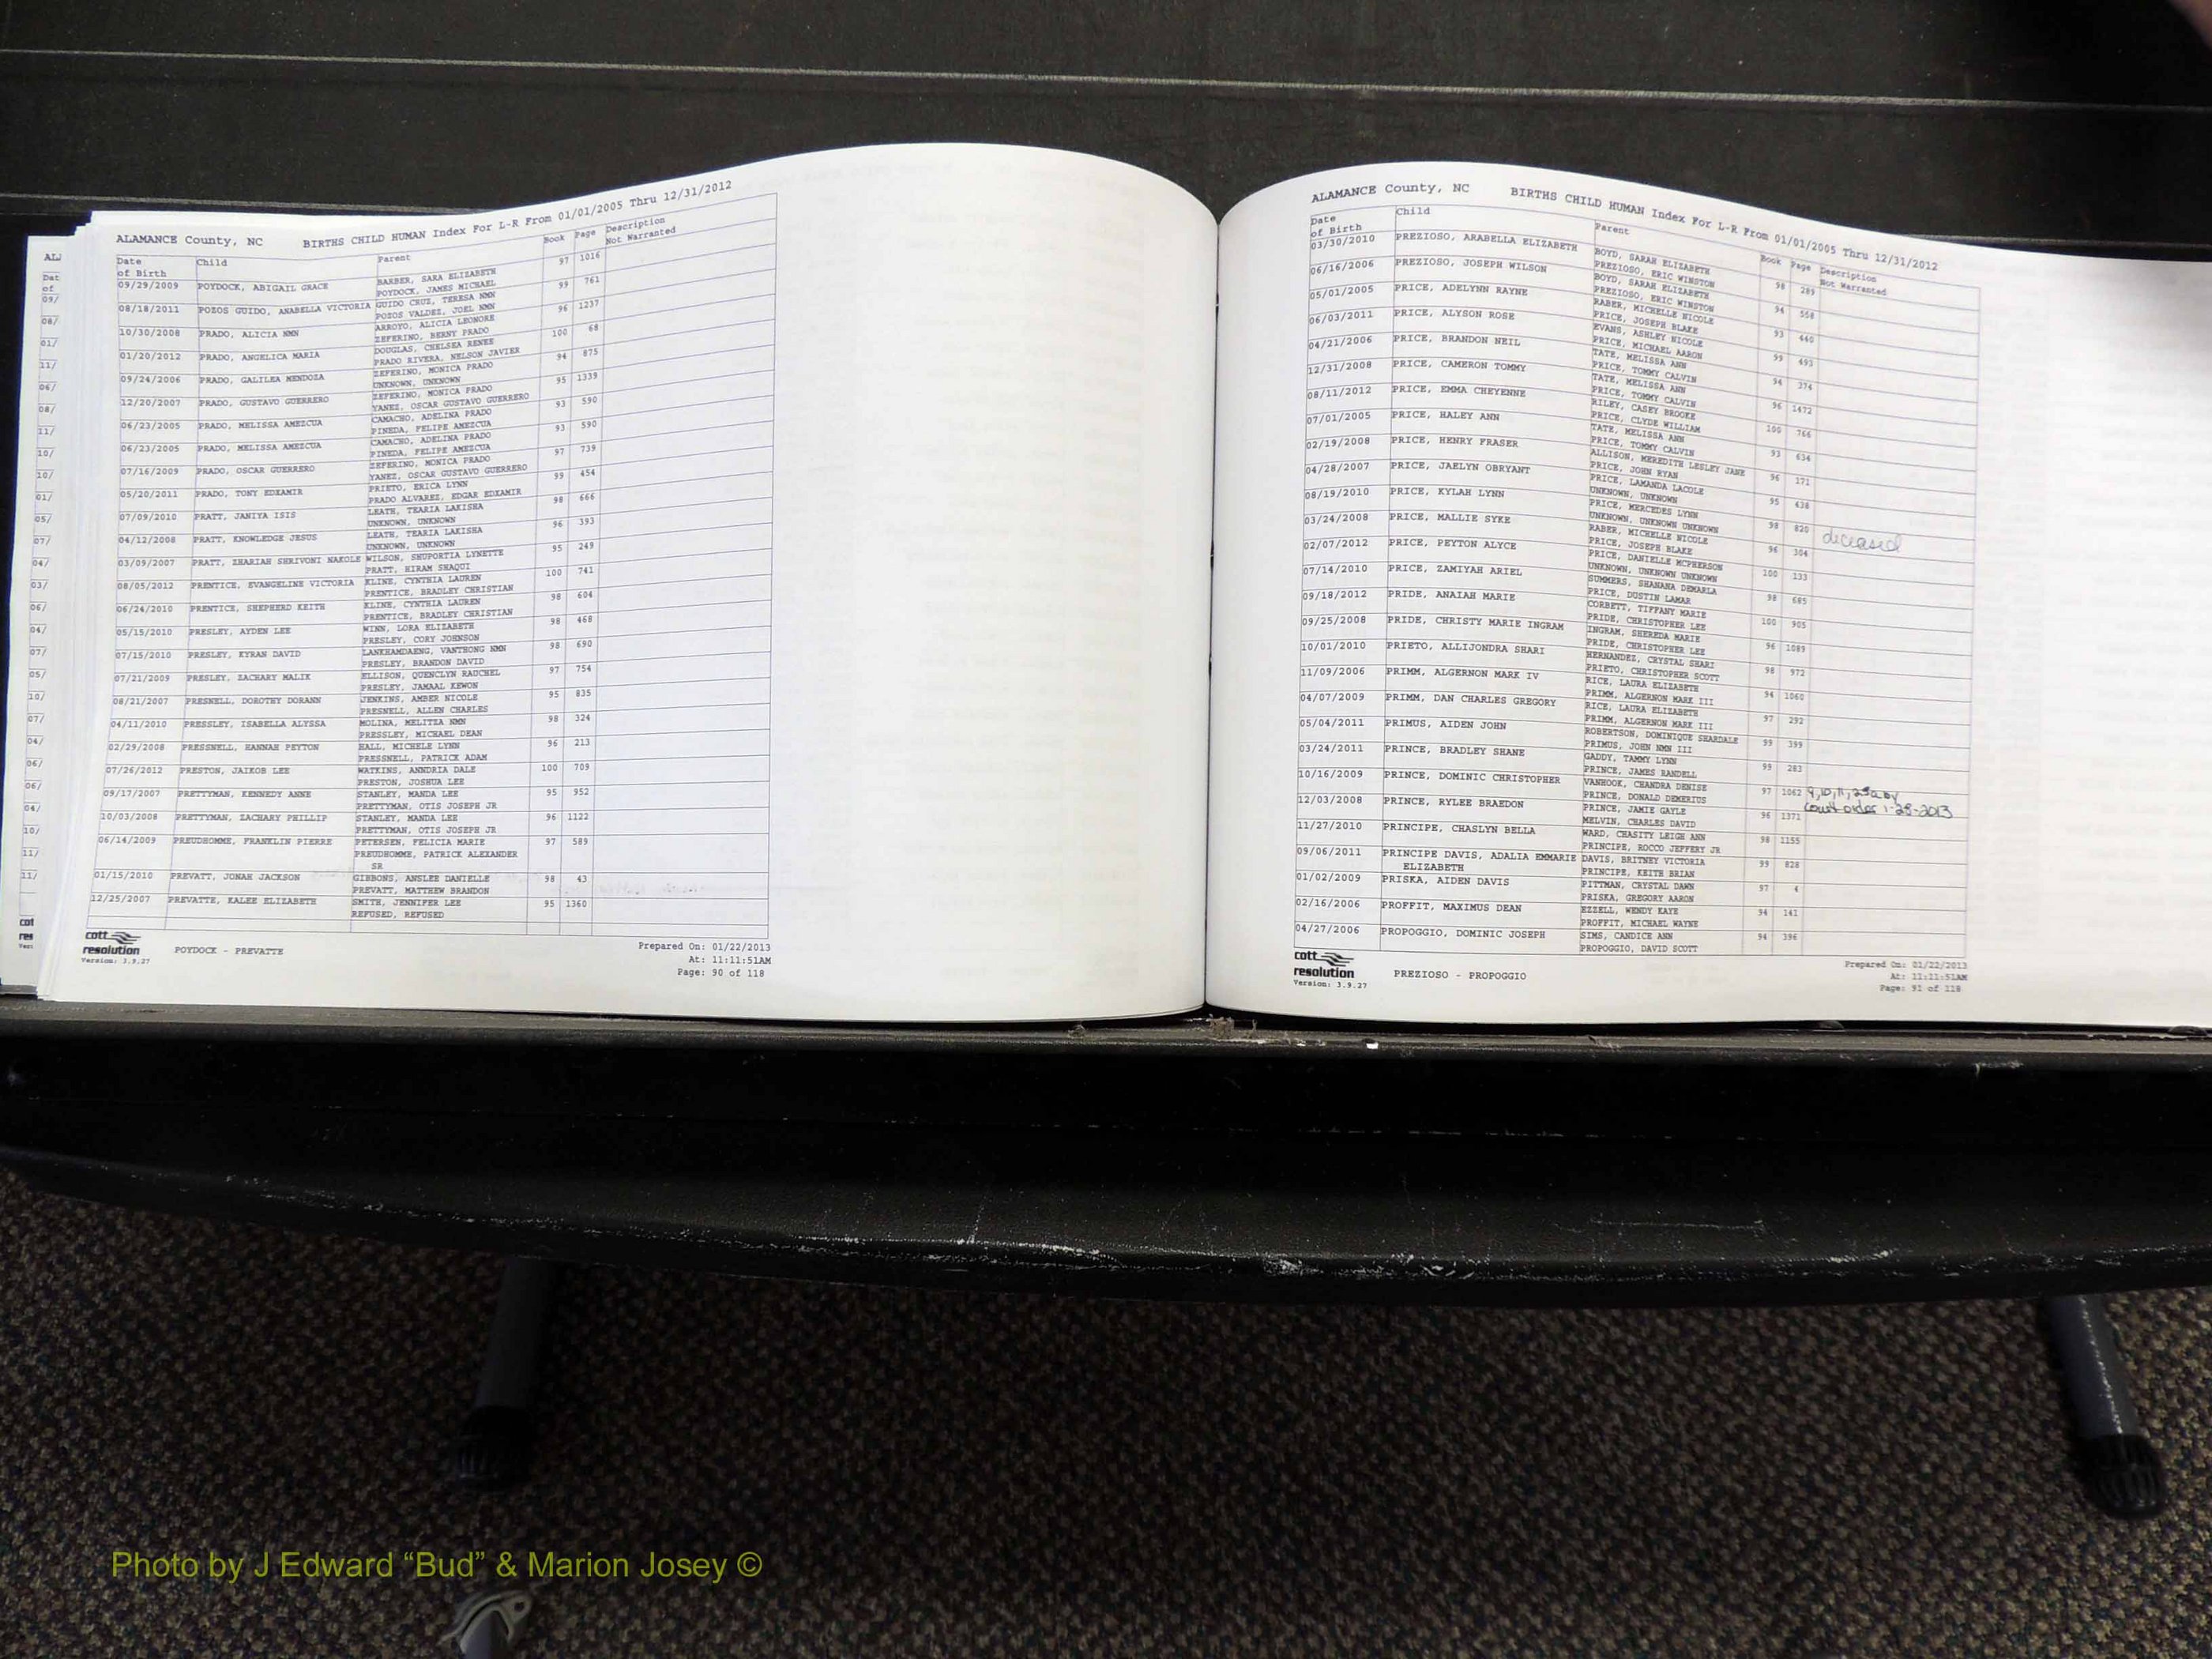 ALAMANCE County, NC BIRTHS CHILD HUMAN Index For L-R From 01/01/2005 Thru 12/31/2012
Date of Birth Child Parent Book Page Description Not Warranted
09/29/2009 POYDOCK, ABIGAIL GRACE BARBER, SARA ELIZABETH 97 1016
POYDOCK, JAMES MICHAEL
08/18/2011 POZOS GUIDO, ANABELLA VICTORIA GUIDO CRUZ, TERESA NMN 99 761
POZOS VALDEZ, JOEL NMN
10/30/2008 PRADO, ALICIA NMN ARROYO, ALICIA LEONORE 96 1237
ZEFERINO, BERNY PRADO
01/20/2012 PRADO, ANGELICA MARIA DOUGLAS, CHELSEA RENEE 100 68
PRADO RIVERA, NELSON JAVIER
09/24/2006 PRADO, GALILEA MENDOZA ZEFERINO, MONICA PRADO 94 875
UNKNOWN, UNKNOWN
12/20/2007 PRADO, GUSTAVO GUERRERO ZEFERINO, MONICA PRADO 95 1339
YANEZ, OSCAR GUSTAVO GUERRERO
06/23/2005 PRADO, MELISSA AMEZCUA CAMACHO, ADELINA PRADO 93 590
PINEDA, FELIPE AMEZCUA
06/23/2005 PRADO, MELISSA AMEZCUA CAMACHO, ADELINA PRADO 93 590
PINEDA, FELIPE AMEZCUA
07/16/2009 PRADO, OSCAR GUERRERO ZEFERINO, MONICA PRADO 97 739
YANEZ, OSCAR GUSTAVO GUERRERO
05/20/2011 PRADO, TONY EDXAMIR PRIETO, ERICA LYNN 99 454
PRADO ALVAREZ, EDGAR EDXAMIR
07/09/2010 PRATT, JANIYA ISIS LEATH, TEARIA LAKISHA 98 666
UNKNOWN, UNKNOWN
04/12/2008 PRATT, KNOWLEDGE JESUS LEATH, TEARIA LAKISHA 96 393
UNKNOWN, UNKNOWN
03/09/2007 PRATT, ZHARIAH SHRIVONI NAKOLE WILSON, SHUPORTIA LYNETTE 95 249
PRATT, HIRAM SHAQUI
08/05/2012 PRENTICE, EVANGELINE VICTORIA KLINE, CYNTHIA LAUREN 100 741
PRENTICE, BRADLEY CHRISTIAN
06/24/2010 PRENTICE, SHEPHERD KEITH KLINE, CYNTHIA LAUREN 98 604
PRENTICE, BRADLEY CHRISTIAN
05/15/2010 PRESLEY, AYDEN LEE WINN, LORA ELIZABETH 98 468
PRESLEY, CORY JOHNSON
07/15/2010 PRESLEY, KYRAN DAVID LANKHAMDAENG, VANTHONG NMN 98 690
PRESLEY, BRANDON DAVID
07/21/2009 PRESLEY, ZACHARY MALIK ELLISON, QUENCLYN RAUCHEL 97 754
PRESLEY, JAMAAL KEWON
08/21/2007 PRESNELL, DOROTHY DORANN JENKINS, AMBER NICOLE 95 835
PRESNELL, ALLEN CHARLES
04/11/2010 PRESSLEY, ISABELLA ALYSSA MOLINA, MELITZA NMN 98 324
PRESSLEY, MICHAEL DEAN
02/29/2008 PRESSNELL, HANNAH PEYTON HALL, MICHELE LYNN 96 213
PRESSNELL, PATRICK ADAM
07/26/2012 PRESTON, JAIKOB LEE WATKINS, ANNDRIA DALE 100 709
PRESTON, JOSHUA LEE
09/17/2007 PRETTYMAN, KENNEDY ANNE STANLEY, MANDA LEE 95 952
PRETTYMAN, OTIS JOSEPH JR
10/03/2008 PRETTYMAN, ZACHARY PHILLIP STANLEY, MANDA LEE 96 1122
PRETTYMAN, OTIS JOSEPH JR
06/14/2009 PREUDHOMME, FRANKLIN PIERRE PETERSEN, FELICIA MARIE 97 589
PREUDHOMME, PATRICK ALEXANDER
SR
01/15/2010 PREVATT, JONAH JACKSON GIBBONS, ANSLEE DANIELLE 98 43
PREVATT, MATTHEW BRANDON
12/25/2007 PREVATTE, KALEE ELIZABETH SMITH, JENNIFER LEE 95 1360
REFUSED, REFUSED
cott
resolution
Version: 3.9.27
POYDOCK - PREVATTE
Prepared On: 01/22/2013
At: 11:11:51AM
Page: 90 of 118
ALAMANCE County, NC BIRTHS CHILD HUMAN Index For L-R From 01/01/2005 Thru 12/31/2012
Date of Birth Child Parent Book Page Description Not Warranted
03/30/2010 PREZIOSO, ARABELLA ELIZABETH BOYD, SARAH ELIZABETH 98 289
PREZIOSO, ERIC WINSTON
06/16/2006 PREZIOSO, JOSEPH WILSON BOYD, SARAH ELIZABETH 94 558
PREZIOSO, ERIC WINSTON
05/01/2005 PRICE, ADELYNN RAYNE RABER, MICHELLE NICOLE 93 440
PRICE, JOSEPH BLAKE
06/03/2011 PRICE, ALYSON ROSE EVANS, ASHLEY NICOLE 99 493
PRICE, MICHAEL AARON
04/21/2006 PRICE, BRANDON NEIL TATE, MELISSA ANN 94 374
PRICE, TOMMY CALVIN
12/31/2008 PRICE, CAMERON TOMMY TATE, MELISSA ANN 96 1472
PRICE, TOMMY CALVIN
08/11/2012 PRICE, EMMA CHEYENNE RILEY, CASEY BROOKE 100 766
PRICE, CLYDE WILLIAM
07/01/2005 PRICE, HALEY ANN TATE, MELISSA ANN 93 634
PRICE, TOMMY CALVIN
02/19/2008 PRICE, HENRY FRASER ALLISON, MEREDITH LESLEY JANE 96 171
PRICE, JOHN RYAN
04/28/2007 PRICE, JAELYN OBRYANT PRICE, LAMANDA LACOLE 95 438
UNKNOWN, UNKNOWN
08/19/2010 PRICE, KYLAH LYNN PRICE, MERCEDES LYNN 98 820 deceased
UNKNOWN, UNKNOWN UNKNOWN
03/24/2008 PRICE, MALLIE SYKE RABER, MICHELLE NICOLE 96 304
PRICE, JOSEPH BLAKE
02/07/2012 PRICE, PEYTON ALYCE PRICE, DANIELLE MCPHERSON 100 133
UNKNOWN, UNKNOWN UNKNOWN
07/14/2010 PRICE, ZAMIYAH ARIEL SUMMERS, SHANANA DEMARLA 98 685
PRICE, DUSTIN LAMAR
09/18/2012 PRIDE, ANAIAH MARIE CORBETT, TIFFANY MARIE 100 905
PRIDE, CHRISTOPHER LEE
09/25/2008 PRIDE, CHRISTY MARIE INGRAM INGRAM, SHEREDA MARIE 96 1089
PRIDE, CHRISTOPHER LEE
10/01/2010 PRIETO, ALLIJONDRA SHARI HERNANDEZ, CRYSTAL SHARI 98 972
PRIETO, CHRISTOPHER SCOTT
11/09/2006 PRIMM, ALGERNON MARK IV RICE, LAURA ELIZABETH 94 1060
PRIMM, ALGERNON MARK III
04/07/2009 PRIMM, DAN CHARLES GREGORY RICE, LAURA ELIZABETH 97 292
PRIMM, ALGERNON MARK III
05/04/2011 PRIMUS, AIDEN JOHN ROBERTSON, DOMINIQUE SHARDALE 99 399
PRIMUS, JOHN NMN III
03/24/2011 PRINCE, BRADLEY SHANE GADDY, TAMMY LYNN 99 283
PRINCE, JAMES RANDELL
10/16/2009 PRINCE, DOMINIC CHRISTOPHER VANHOOK, CHANDRA DENISE 97 1062 9,10,11,23a by
PRINCE, DONALD DEMERIUS court order 1-28-2013
12/03/2008 PRINCE, RYLEE BRAEDON PRINCE, JAMIE GAYLE 96 1371
MELVIN, CHARLES DAVID
11/27/2010 PRINCIPE, CHASLYN BELLA WARD, CHASITY LEIGH ANN 98 1155
PRINCIPE, ROCCO JEFFERY JR
09/06/2011 PRINCIPE DAVIS, ADALIA EMMARIE DAVIS, BRITNEY VICTORIA 99 828
ELIZABETH PRINCIPE, KEITH BRIAN
01/02/2009 PRISKA, AIDEN DAVIS PITTMAN, CRYSTAL DAWN 97 4
PRISKA, GREGORY AARON
02/16/2006 PROFFIT, MAXIMUS DEAN EZZELL, WENDY KAYE 94 141
PROFFIT, MICHAEL WAYNE
04/27/2006 PROPOGGIO, DOMINIC JOSEPH SIMS, CANDICE ANN 94 396
PROPOGGIO, DAVID SCOTT
cott
resolution
Version: 3.9.27
PREZIOSO - PROPOGGIO
Prepared On: 01/22/2013
At: 11:11:51AM
Page: 91 of 118
Photo by J Edward “Bud” & Marion Josey ©